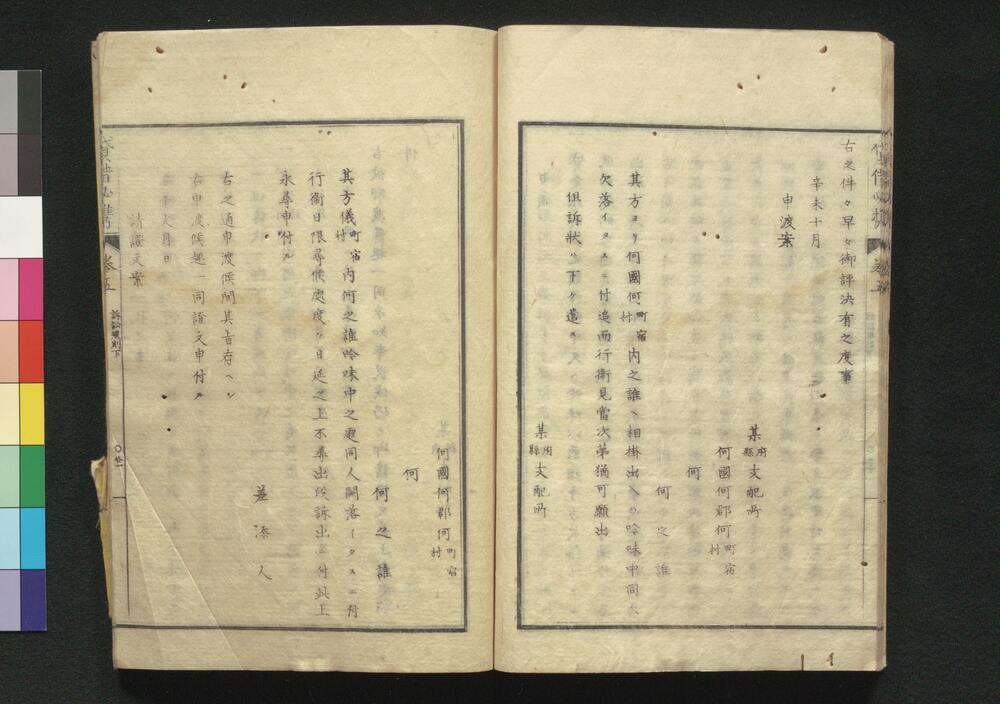 右之件々早々御評決有之度事
辛未十月
申渡案
某府縣支配所
何國何郡何町村宿
何
何之誰
其方ヨリ何國何町村宿内之誰ヘ相掛出入ノ吟味中同人
欠落イタスニ付追而行衛見當次第猶可願出
但訴状ハ下ケ遣ス
某府縣支配所
何國何郡何町村宿
何
何之誰
其方儀町村宿内何之誰吟味中之處同人闕落イタスニ付
行衛日限尋候處度々日延之上不尋出段訴出ニ付此上
永尋申付ル
差添人
右之通申渡候間其旨存ヘシ
右申渡候趣一同證文申付ル
年号月日
請證文案
貸借必携 卷五 訴訟規則下 〇廿一